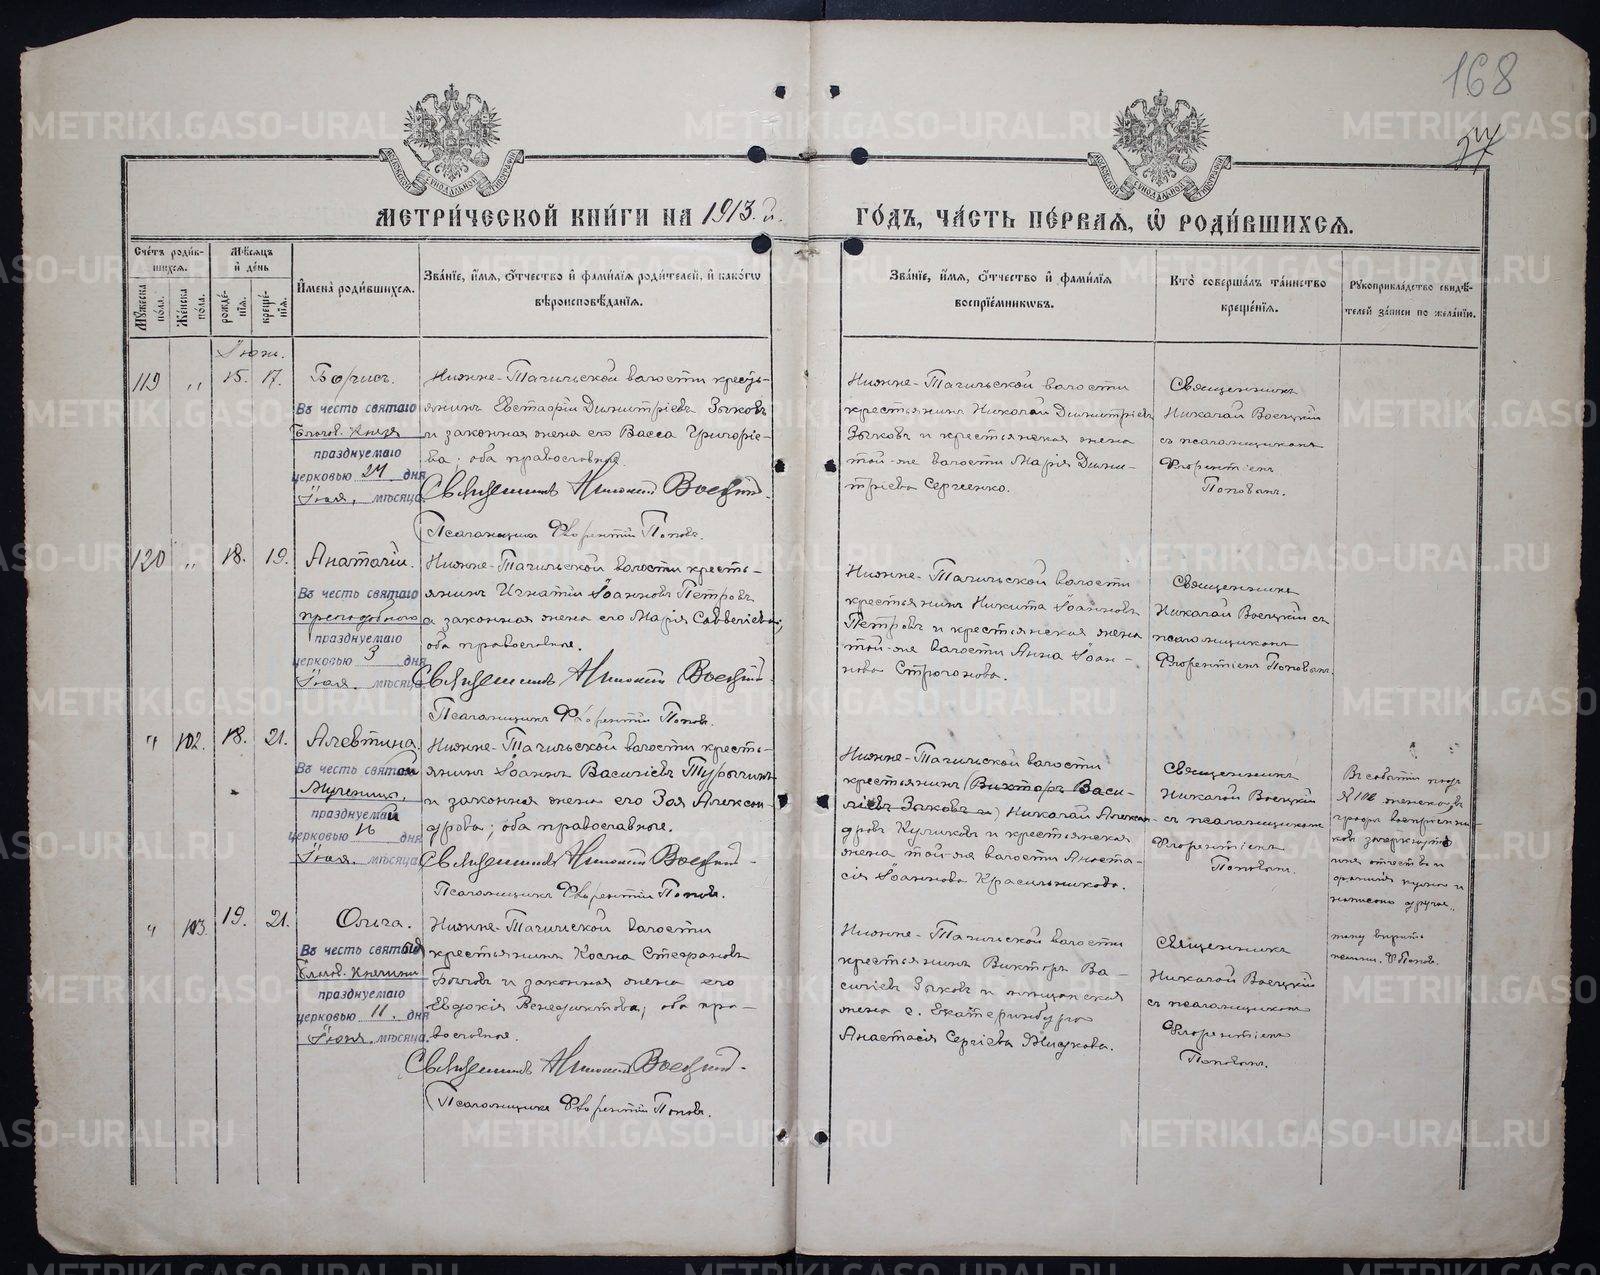 168
37
МОСКОВСКОЙ СѴНОДАЛЬНОЙ ТИПОГРАФІИ
МОСКОВСКОЙ СѴНОДАЛЬНОЙ ТИПОГРАФІИ
МЕТРИ́ЧЕСКОЙ КНИ́ГИ НА 1913 й.
ГО́ДЪ, ЧА́СТЬ ПЕ́РВАѦ, Ѽ РОДИ́ВШИХСѦ.
Сче́тъ роди́в-
шихсѧ.
Мꙋ́жеска по́ла.
Же́нска по́ла.
Мѣ́сѧцъ
и҆ де́нь
рожде́-
нїѧ.
креще́-
нїѧ.
И҆мена̀ роди́вшихсѧ.
Зва́нїе, и҆́мѧ, ѻ҆́тчество и҆ фами́лїѧ роди́телей, и҆ како́гѡ
вѣроисповѣ́данїѧ.
Зва́нїе, и҆́мѧ, ѻ҆́тчество и҆ фами́лїѧ
воспрїе́мникѡвъ.
Кто̀ соверша́лъ та́инство
креще́нїѧ.
Рꙋкоприкла́дство свидѣ́-
телей за́писи по жела́нїю.
Іюнь.
119 „ 15. 17. Борисъ.
Въ честь святаго
Благов. Князя
празднуемаго
церковью 24 дня
Іюля, мѣсяца.
Нижне-Тагильской волости кресть-
янинъ Евстафій Димитріевъ Зыковъ
и законная жена его Васса Григоріе-
ва; оба православные.
Священникъ Николай Воецкій.
Псаломщикъ Флорентій Поповъ.
Нижне-Тагильской волости
крестьянинъ Николай Димитріевъ
Зыковъ и крестьянская жена
той-же волости Марія Дими-
тріева Сергеенко.
Священникъ
Николай Воецкій
съ псаломщикомъ
Флорентіемъ
Поповымъ.
120 „ 18. 19. Анатолій.
Въ честь святаго
преподобнаго
празднуемаго
церковью 3 дня
Іюля, мѣсяца.
Нижне-Тагильской волости кресть-
янинъ Игнатій Іоанновъ Петровъ
и законная жена его Марія Савветіева;
оба православные.
Священникъ Николай Воецкій.
Псаломщикъ Флорентій Поповъ.
Нижне-Тагильской волости
крестьянинъ Никита Іоанновъ
Петровъ и крестьянская жена
той-же волости Анна Іоан-
нова Строгонова.
Священникъ
Николай Воецкій съ
псаломщикомъ
Флорентіемъ Поповымъ.
„ 102. 18. 21. Алевтина.
Въ честь святой
Мученицы,
празднуемой
церковью 16 дня
Іюля, мѣсяца.
Нижне-Тагильской волости кресть-
янинъ Іоаннъ Василіевъ
и законная жена его Зоя Алексан-
дрова; оба православные.
Священникъ Николай Воецкій.
Псаломщикъ Флорентій Поповъ.
Нижне-Тагильской волости
крестьянинъ (Викторъ Васи-
ліевъ Зыковъ и) Николай Алексан-
дровъ Куликовъ и крестьянская
жена той-же волости Анаста-
сія Іоаннова Красильникова.
Священникъ
Николай Воецкій
съ псаломщикомъ
Флорентіемъ
Поповымъ.
Въ событіи подъ
№ 102 женскомъ
графы воспріемни-
ковъ зачеркнуто
имя отчество и
фамилія и
написано другое,
тому вѣрить
Ф. Поповъ.
„ 103. 19. 21. Ольга.
Въ честь святыя
Благов. Княгини
празднуемаго
церковью 11. дня
Іюля, мѣсяца.
Нижне-Тагильской волости
крестьянинъ Косма Стефановъ
Бычовъ и законная жена его
Евдокія Венедиктова; оба пра-
вославные.
Священникъ Николай Воецкій.
Псаломщикъ Флорентій Поповъ.
Нижне-Тагильской волости
крестьянинъ Викторъ Ва-
силіевъ Зыковъ и мѣщанская
жена г. Екатеринбурга
Анастасія Сергіева
Священникъ
Николай Воецкій
съ псаломщикомъ
Флорентіемъ
Поповымъ.
METRIKI.GASO-URAL.RU